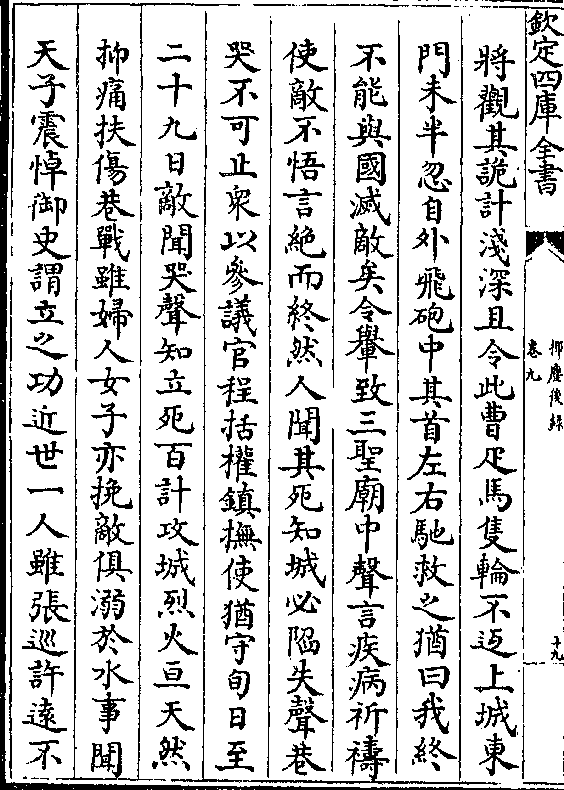 欽定四庫全書
揮麈後錄
卷九
十九
將觀其詭計淺深且令此曹疋馬隻輪不返上城東
門未半忽自外飛砲中其首左右馳救之猶曰我終
不能與國滅敵矣令轝致三聖廟中聲言疾病祈禱
使敵不悟言絶而終然人聞其死知城必陷失聲巷
哭不可止衆以參議官程括權鎮撫使猶守旬日至
二十九日敵聞哭聲知立死百計攻城烈火亘天然
抑痛扶傷巷戰雖婦人女子亦挽敵俱溺於水事聞
天子震悼御史謂立之功近世一人雖張巡許遠不